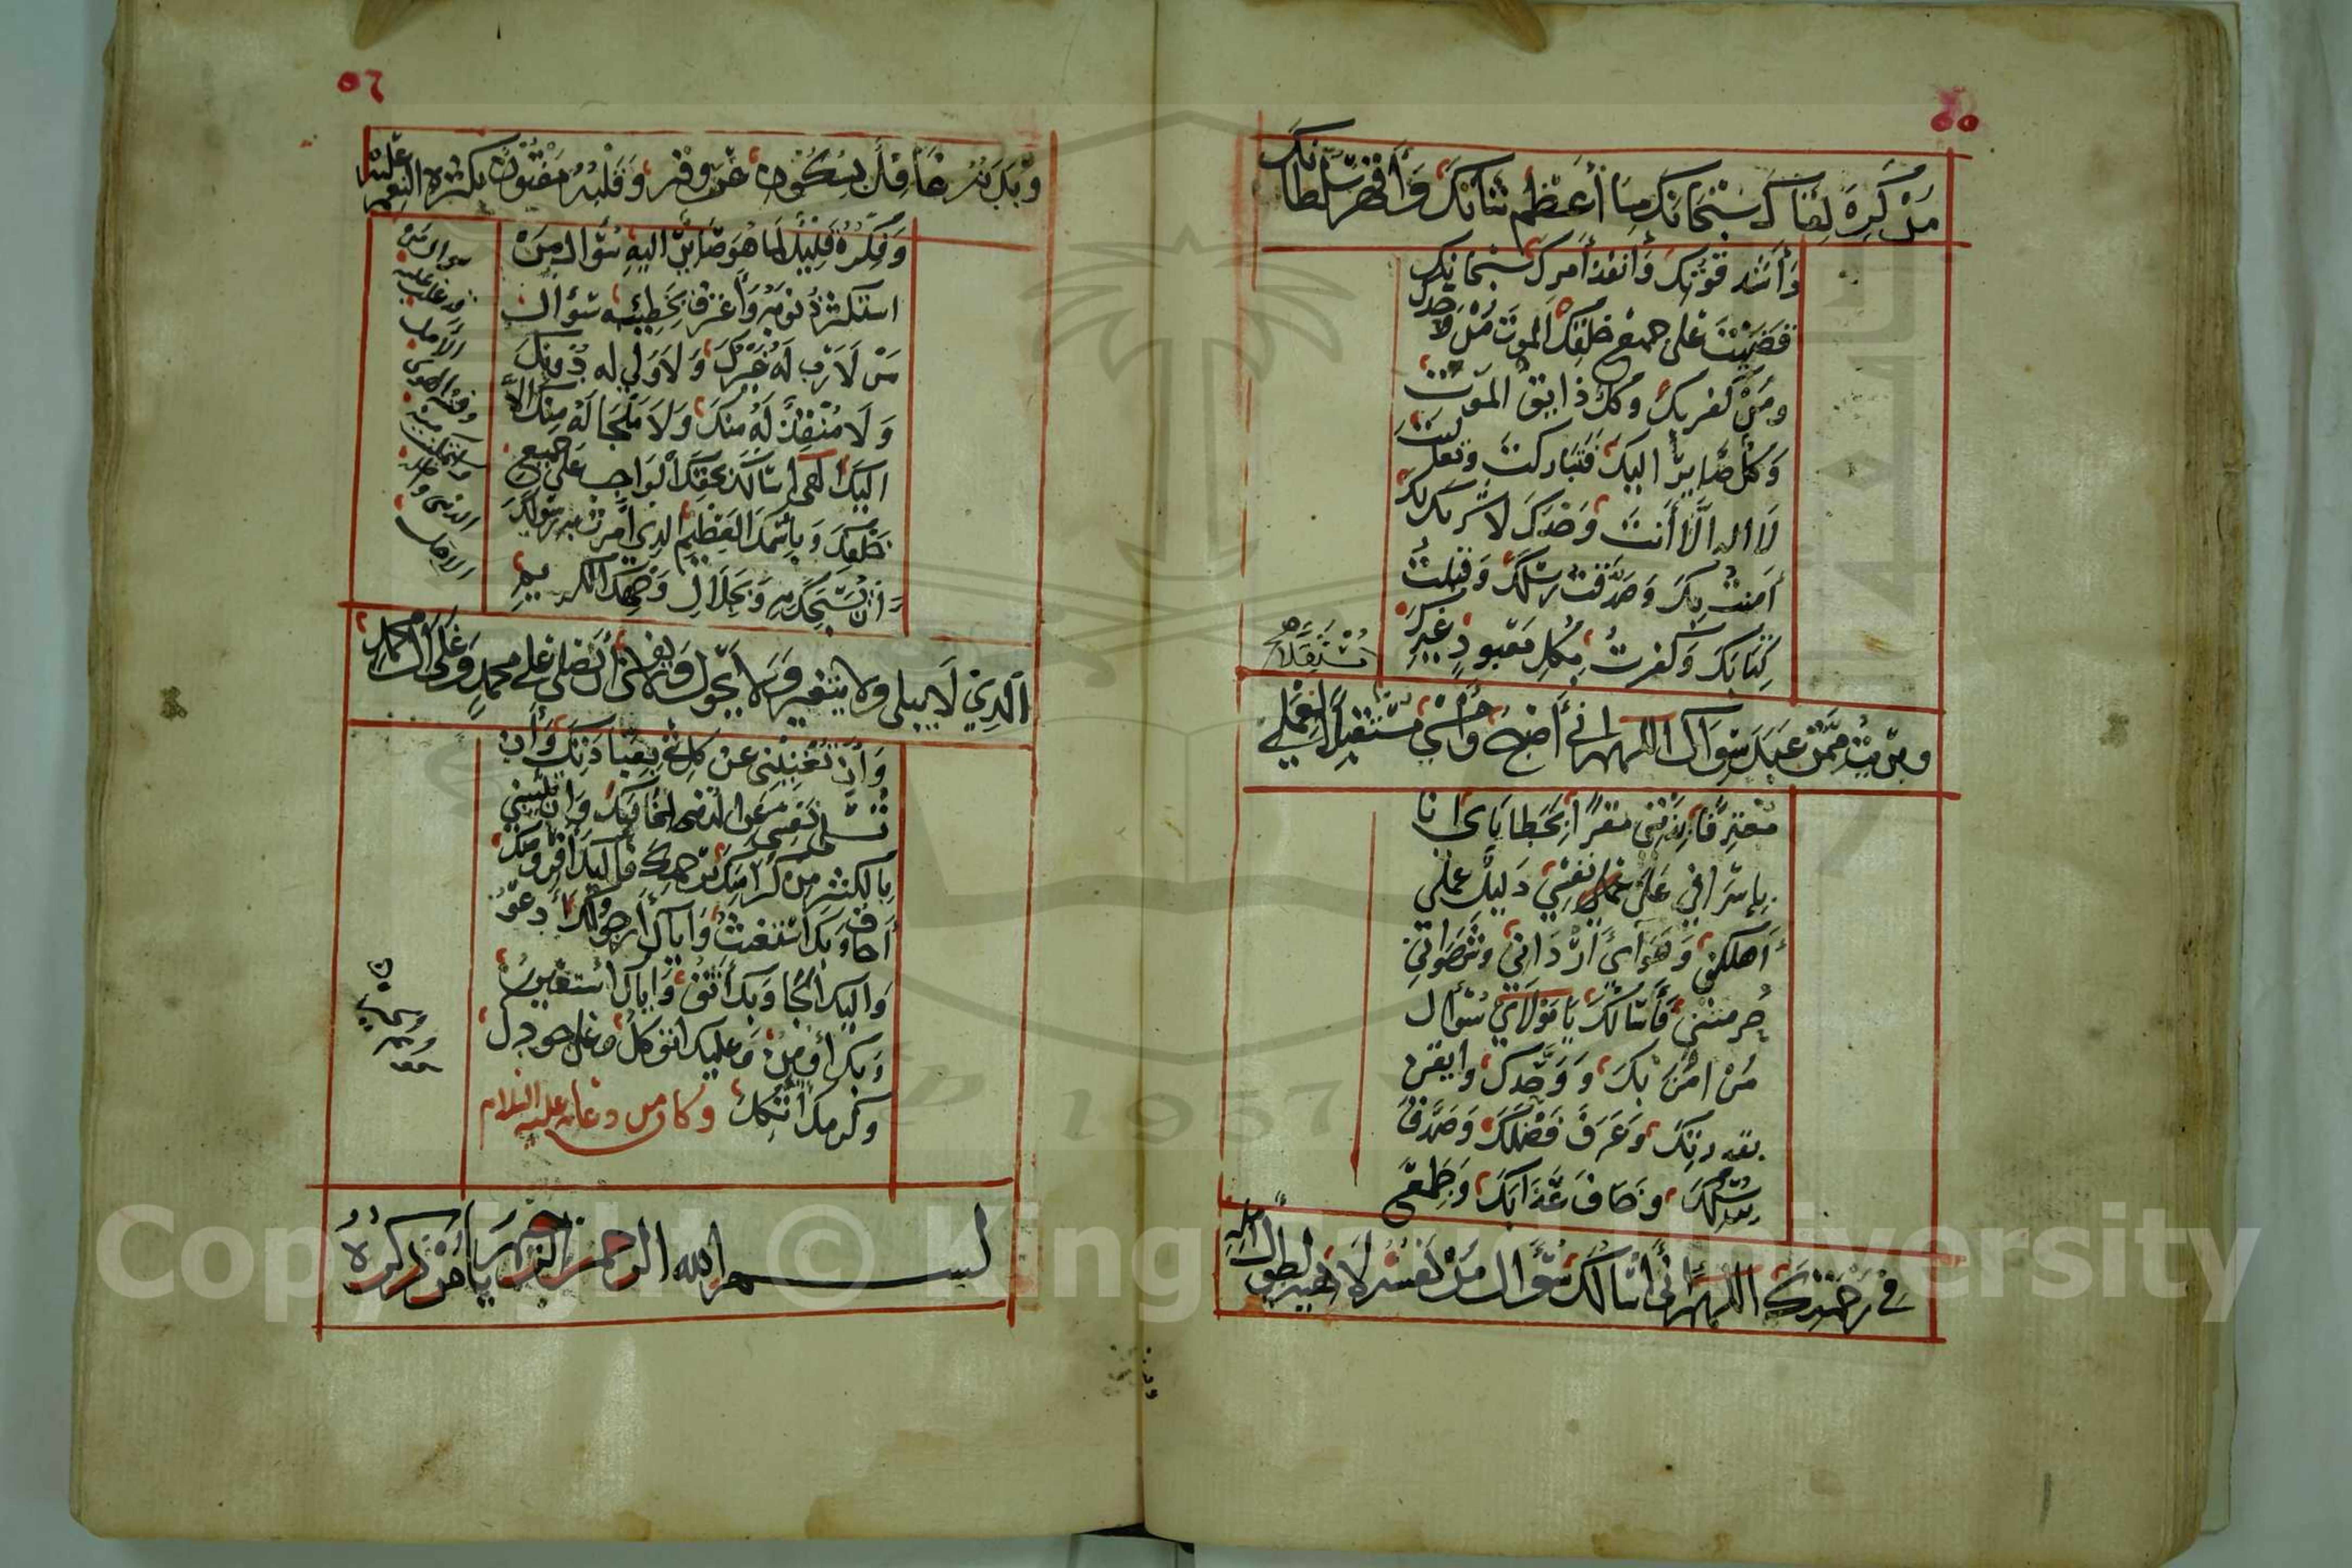 ٥٥
من كره لقاك سبحانك ما أعظم شانك وأقهر سلطانك
وأشد قوتك وأنفذ أمرك سبحانك
قضيت على جميع خلقك الموت من وحدك
ومن كفر بك وكل ذايق الموت
وكل صاير اليك فتباركت وتعليت
لا اله الا أنت وحدك لا شريك لك
أمنت بك وصدقت رسلك وقبلت
كتابك وكفرت بكل معبود غيرك
مستقلا
وبريت ممن عبد سواك اللهم اني أصبح وأمسي مستقبلا لعملي
معترفا بذنبي مقرا بخطاياى انا
باسرافي على نفسي ذليل عملي
أهلكني وهواي أرداني وشهواتي
حرمتني فأسالك يا مولاي سؤال
من امن بك ووحدك وايقن
بقدرتك وعرف فضلك وصدق
رسلك وخاف عذابك وطمع
في رحمتك اللهم اني أسالك سؤال من نفسه لاهيه لطول امله
٥٦
وبدنه غافل بسكون عروقه وقلبه مفتون بكثرة النعم عليه
وفكره قليل لما هو صاير اليه سؤال من
استكثر ذنوبه واعترف بخطيئته سؤال
من لا رب له غيرك ولا ولي له دونك
ولا منقذ له منك ولا ملجا له منك الا
اليك الهى اسالك بحقك الواجب على جميع
خلقك وباسمك العظيم الذي أمرت به رسولك
أن يسبحك به وبجلال وجهك الكريم
سوال من
قد غلب عليه
الامل
وفتنه الهوى
واستمكنت منه
الدنيا واظله
الاجل
الذي لا يبلى ولا يتغير ولا يحول ولا يفنى أن تصلي على محمد وعلى آل محمد
وأن تغنيني عن كل شي بعبادتك وأن
تسلي نفسي عن الدنيا لمخافتك وان تثيبني
بالكثير من كرامتك برحمتك فاليك أفر ومنك
أخاف وبك أستغيث واياك أرجو ولك أدعو
واليك الجا وبك أثق واياك أستعين
وبك أومن وعليك اتوكل وعلى جودك
وكرمك أتكل وكان من دعائه عليه السلام
بسم الله الرحمن الرحيم يا من ذكره